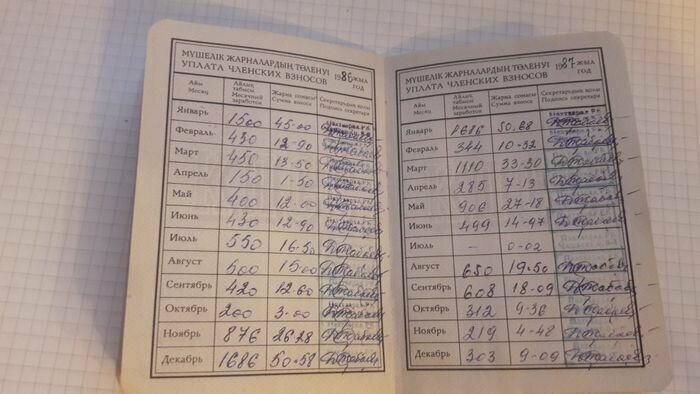 МҮШЕЛІК ЖАРНАЛАРДЫҢ ТӨЛЕНУІ 1986 ЖЫЛ
УПЛАТА ЧЛЕНСКИХ ВЗНОСОВ ГОД
Айы Месяц
Айлық табысы Месячный заработок
Жарна сомасы Сумма взноса
Секретардың қолы Подпись секретаря
Январь 1500 45-00
Февраль 430 12-90
Март 450 13-50
Апрель 150 1-50
Май 400 12-00
Июнь 430 12-90
Июль 550 16-50
Август 500 15-00
Сентябрь 420 12-60
Октябрь 200 3-00
Ноябрь 876 26-28
Декабрь 1686 50-58
МҮШЕЛІК ЖАРНАЛАРДЫҢ ТӨЛЕНУІ 1987 ЖЫЛ
УПЛАТА ЧЛЕНСКИХ ВЗНОСОВ ГОД
Айы Месяц
Айлық табысы Месячный заработок
Жарна сомасы Сумма взноса
Секретардың қолы Подпись секретаря
Январь 1686
Февраль 344 10-32
Март 1110 33-30
Апрель 285 7-13
Май 906 27-18
Июнь 499 14-97
Июль – 0-02
Август 650 19-50
Сентябрь 608 18-09
Октябрь 312 9-36
Ноябрь 219 4-48
Декабрь 303 9-09